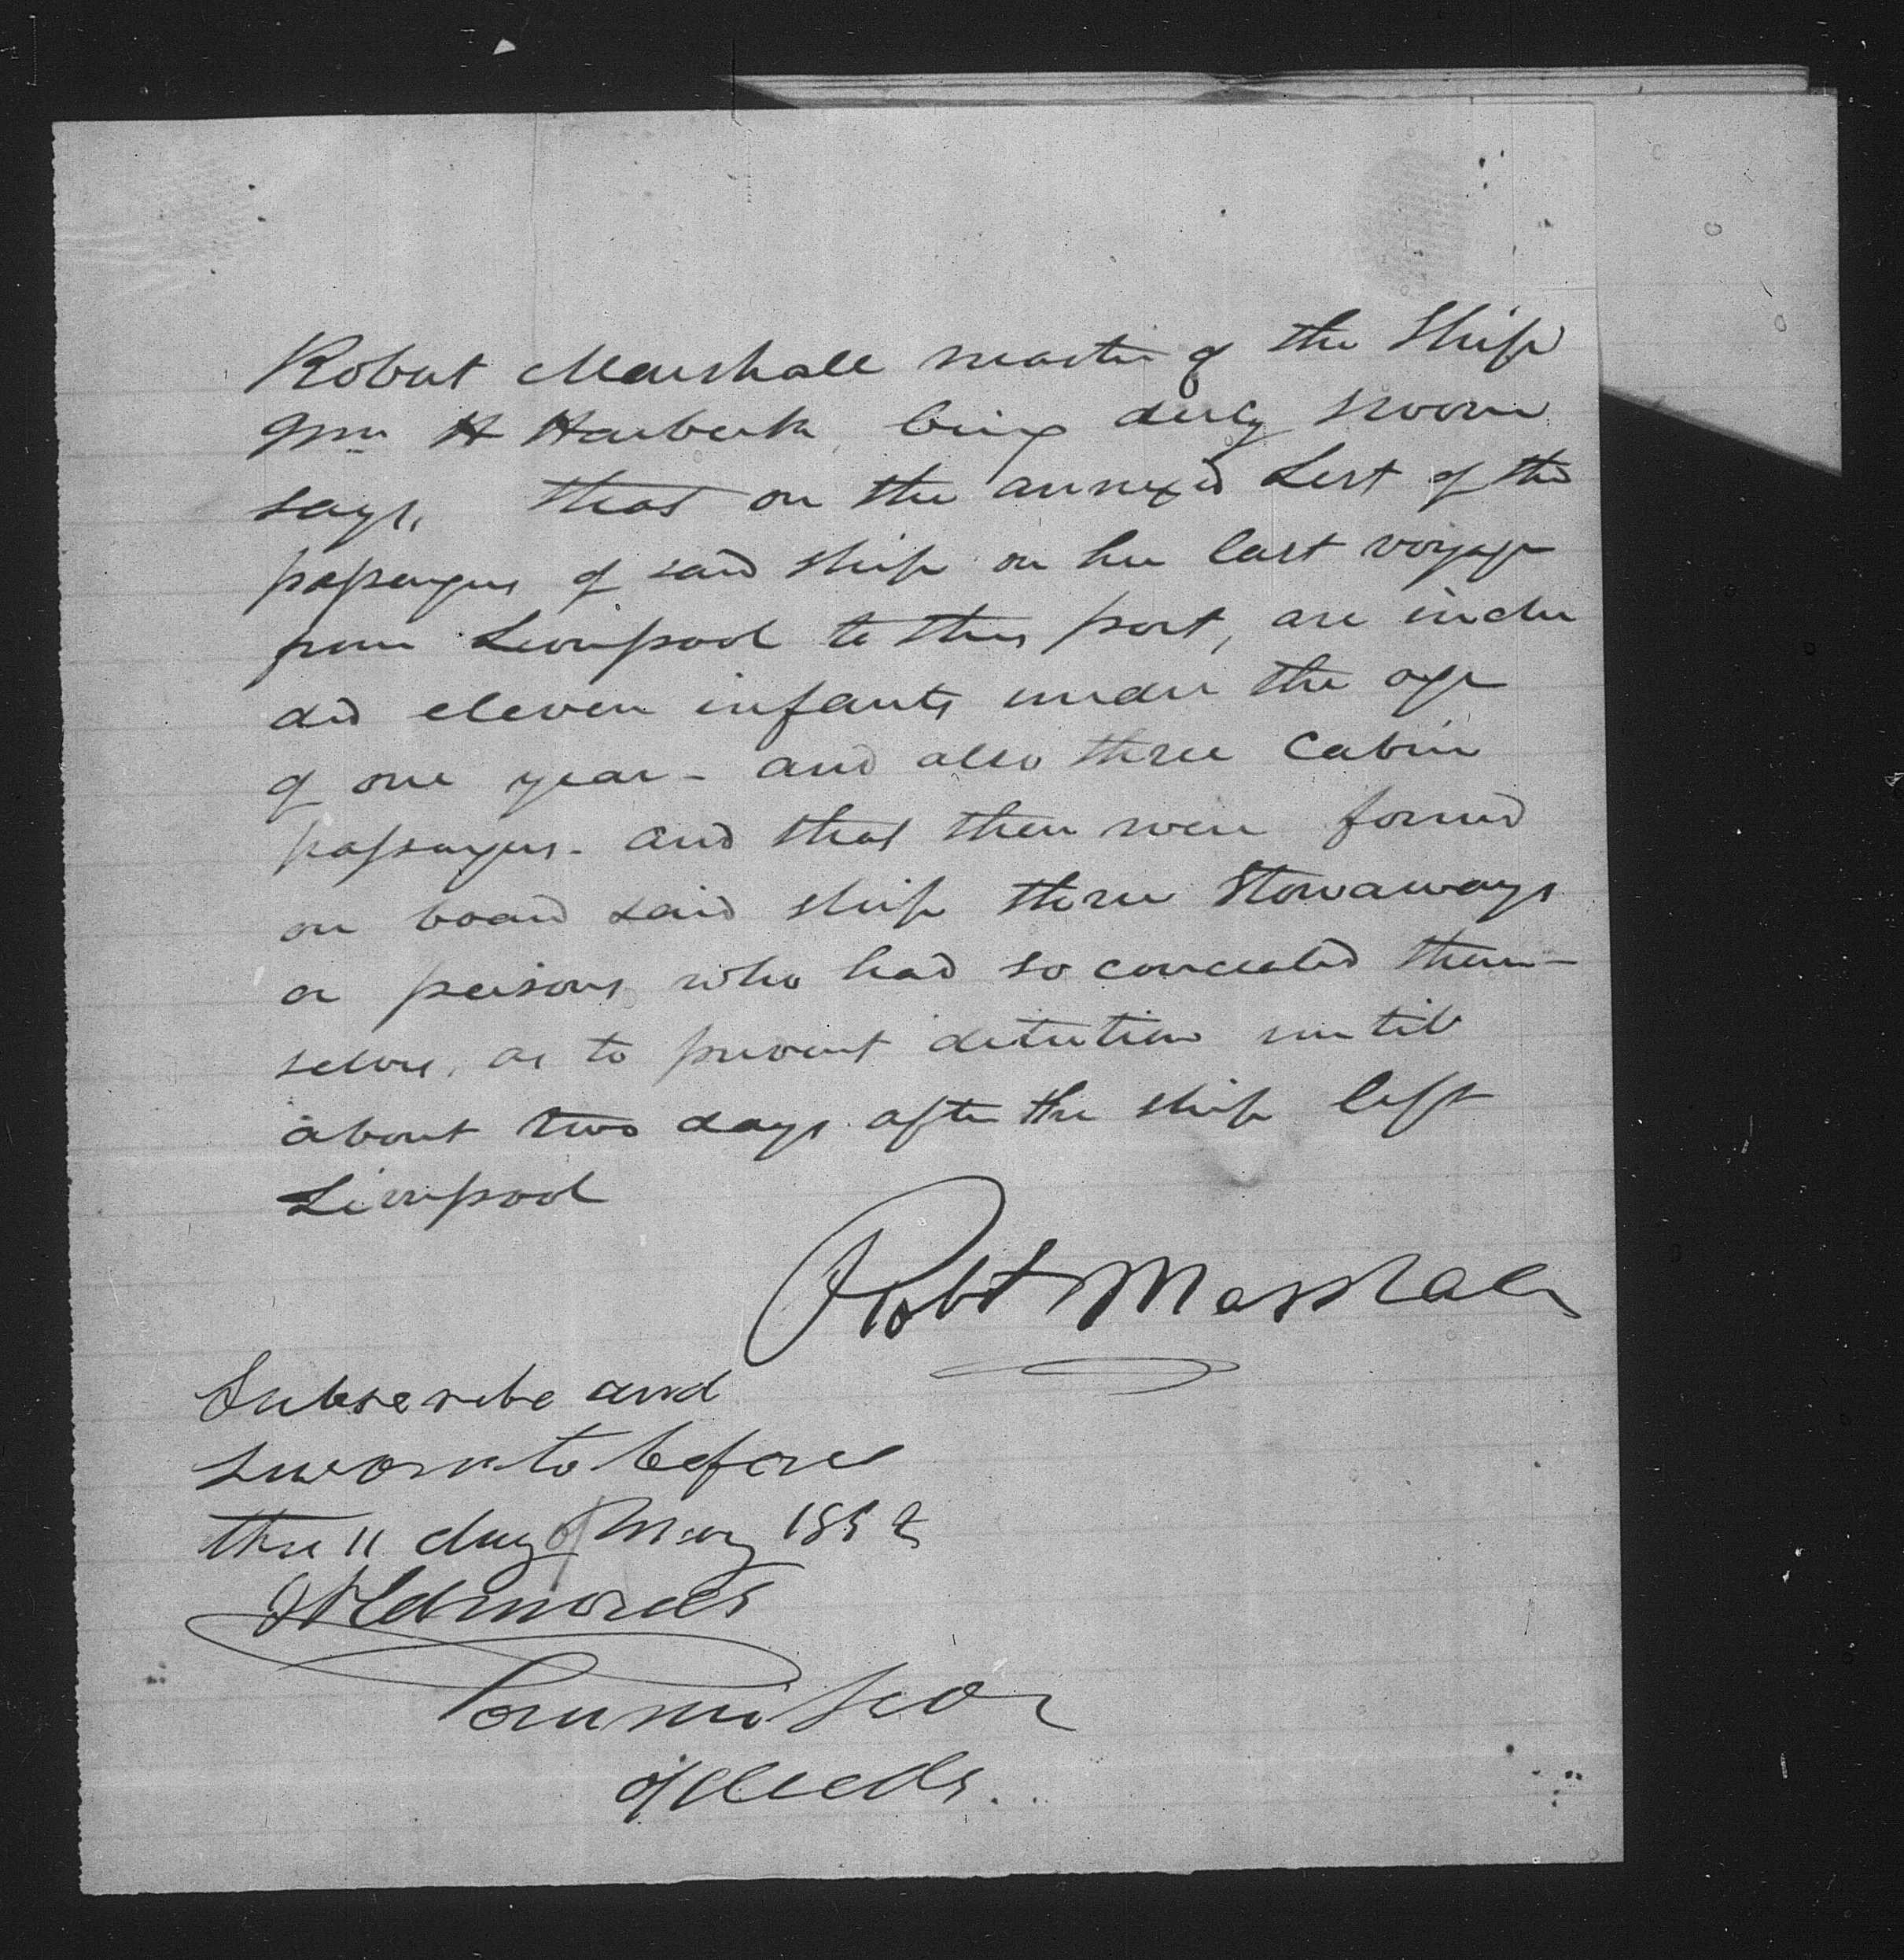 Robert Marshall master of the Ship
Wm H Harbeck, being duly sworn
says, that on the annexed List of the
passengers of said ship on her last voyage
from Liverpool to this port, are inclu
ded eleven infants under the age
of one year - and also three Cabin
passengers - and that there were found
on board said ship three Stowaways
or persons who had so concealed them-
selves, as to prevent detection until
about two days after the ship left
Liverpool
Robt Marshall
Subscribe and
sworn to before
this 11 day of May 185
Edmonds
Commissior
of deeds.